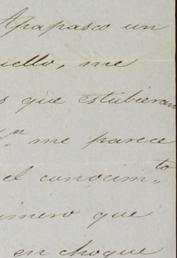 Apapasco un
uello, me
s que estubieran
me parece
el conocim.to
imero que
en choque